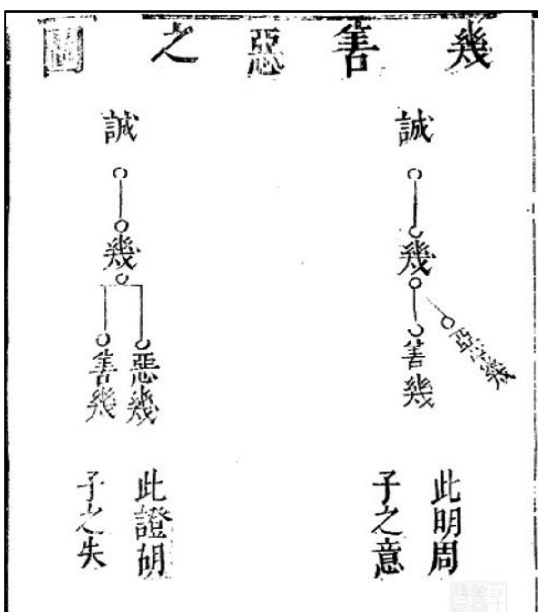 幾善惡之圖
誠
幾
惡幾
善幾
此明周
子之意
誠
幾
惡幾
善幾
此證胡
子之失